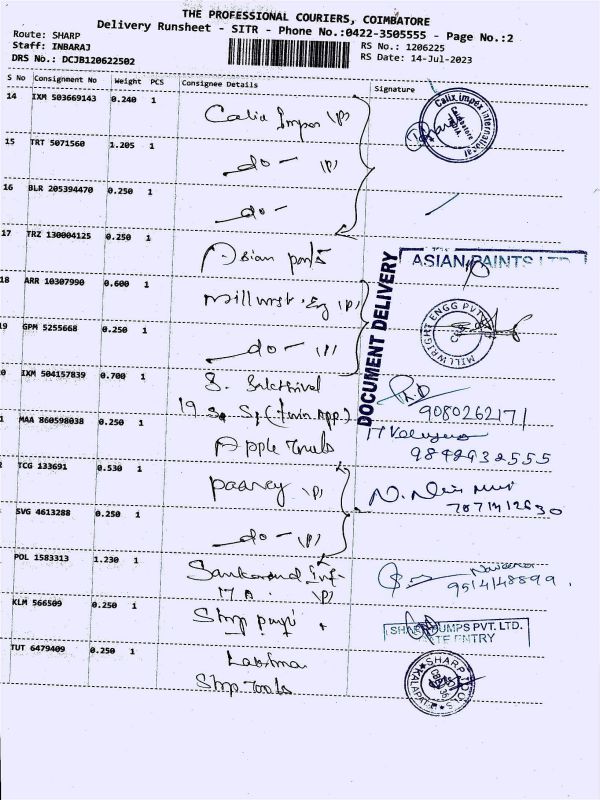 THE PROFESSIONAL COURIERS, COIMBATORE
Delivery Runsheet - SITR - Phone No.:0422-3505555 - Page No.:2
Route: SHARP
Staff: INBARAJ
RS No.: 1206225
DRS No.: DCJB120622502
RS Date: 14-Jul-2023
S No Consignment No Weight PCS Consignee Details Signature
14 IXM 503669143 0.240 1
(P)
Calix Impex International
Coimbatore
15 TRT 5071560 1.205 1
do - (P)
16 BLR 205394470 0.250 1
do -
17 TRZ 130004125 0.250 1
Asian paints
ASIAN PAINTS LTD
DOCUMENT DELIVERY
18 ARR 10307990 0.600 1
Millwrst Eg (P)
MILLWRIGHT ENGG PVT
19 GPM 5255668 0.250 1
do - (P)
0 IXM 504157839 0.700 1
S.
19
9080262171
1 MAA 860598038 0.250 1
Apple Tools
9842932555
2 TCG 133691 0.530 1
(P)
7071412630
SVG 4613288 0.250 1
do - (P)
POL 1583313 1.230 1
M.A. (P)
9514148899.
KLM 566509 0.250 1
SHARP PUMPS PVT. LTD.
GATE ENTRY
TUT 6479409 0.250 1
SHARP TOOLS
KALAPATTI